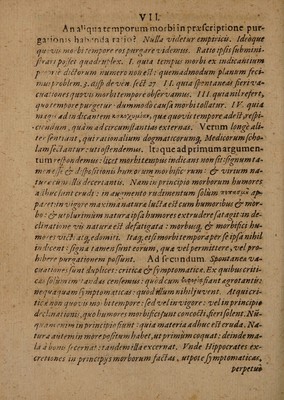 VII.
An aliqua temporum morbi in præscriptione pur-
gationis habenda ratio? Nulla videtur empiricis. Ideoque
quovis morbi tempore eos purgare videmus. Ratio ipsis submini-
strari posset quadruplex. I. quia tempus morbi ex indicantium
numero non est: quemadmodum planum feci-
mus problem. 2. diss. de ven. sect. II. quia spontaneas sive va-
cuationes quovis morbi tempore observamus. III. quia nil refert,
quo tempore purgetur: dummodo causa morbi tollatur. IV. quia
magis ad indicantem quæ quovis tempore adest, respi-
ciendum, quàm ad circumstantias externas. Verum longè ali-
ter sentiunt, qui rationalium dogmaticorumq; Medicorum scho-
lam sectantur: uti ostendemus. Itaque ad primum argumen-
tum respondemus: licet morbi tempus indicans non sit: signum ta-
men esse & dispositionis humorum morbificorum: & virium na-
turæ cum illis decertantis. Nam in principio morborum humores
adhuc sunt crudi: in augmento rudimentum solum ap-
paret: in vigore maxima naturæ lucta est cum humoribus & mor-
bo: & ut plurimùm natura ipsa humores extrudere satagit: in de-
clinatione vis naturæ est defatigata: morbusq; & morbifici hu-
mores victi atq; edomiti. Itaq; etsi morbi tempora per se ipsa nihil
indicent: signa tamen sunt eorum, quæ vel permittere, vel pro-
hibere purgationem possunt. Ad secundum. Spontanea va-
cuationes sunt duplices: critica & symptomatica. Ex quibus criti-
cas solùm imitandas censemus: quòd cum fiant ægrotantis:
nequaquam symptomaticas: quòd illum nihil juvent. Atqui criti-
cæ non quovis morbi tempore: sed vel in vigore: vel in principio
declinationis, quo humores morbifici sunt concocti, fieri solent. Nũ-
quam enim in principio fiunt: quia materia adhuc est cruda. Na-
tura autem in more positum habet, ut primùm coquat: deinde ma-
la à bonis secernat: tandem illa excernat. Unde Hippocrates ex-
cretiones in principijs morborum factas, utpote symptomaticas,
perpetuò